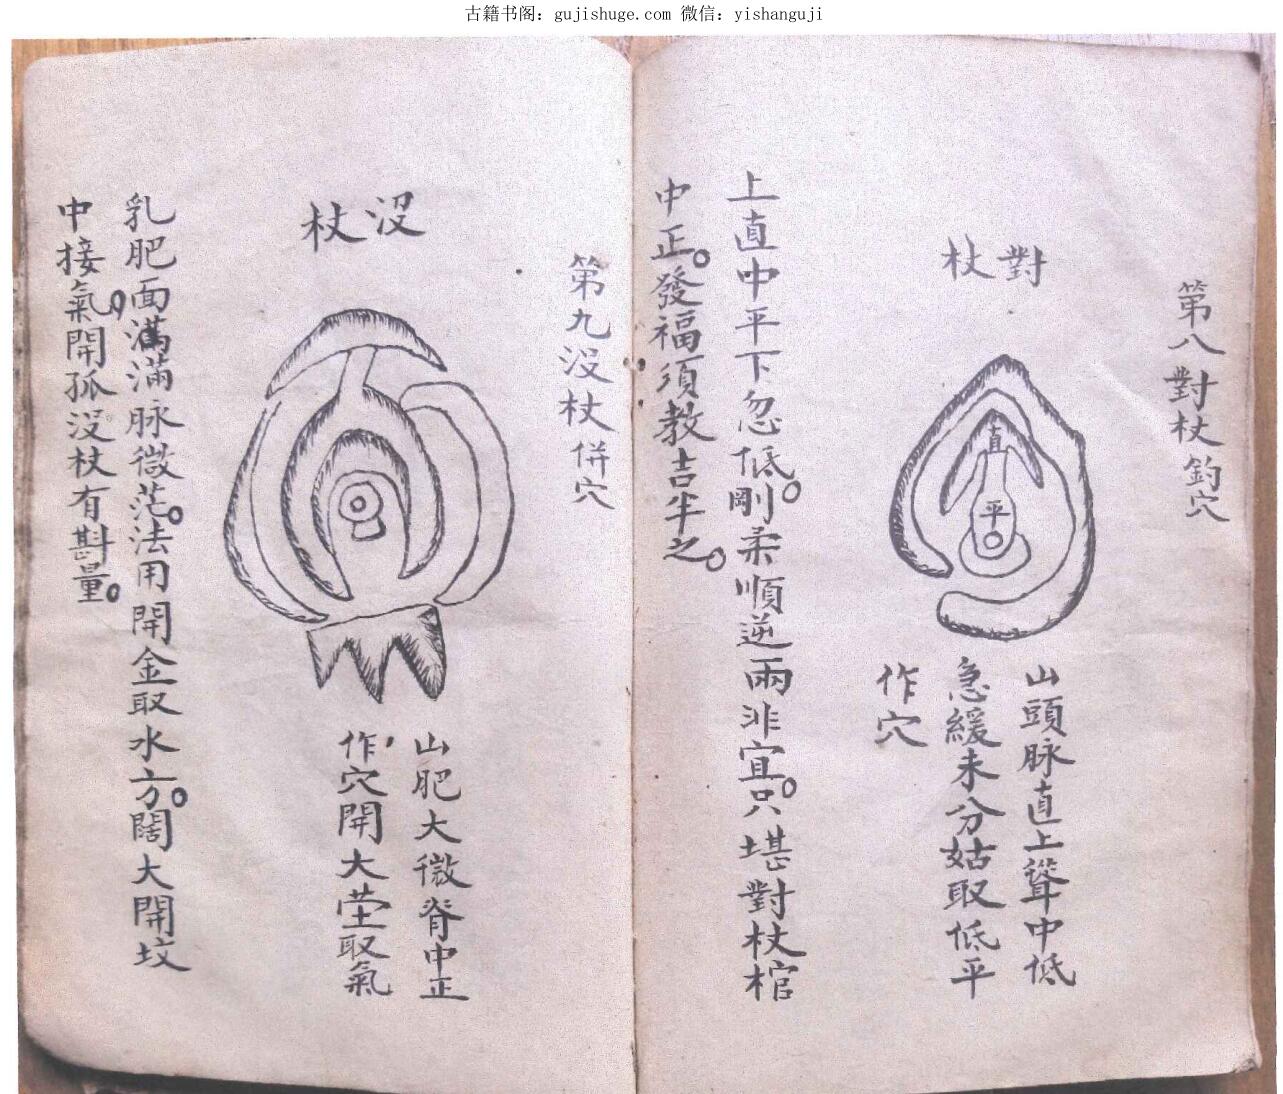 古籍书阁：gujishuge.com 微信：yishanguji
第八對杖鈎穴
對杖
直
平
山頭脉直上聳中低
急緩未分姑取低平
作穴
上直中平下忽低。剛柔順逆兩非宜。只堪對杖棺
中正。發福須教吉半之。
第九沒杖併穴
沒杖
山肥大微脊中正
作穴開大塋取氣
乳肥面滿滿脉微茫。法用開金取水方。闊大開坟
中接氣。開孤沒杖有斟量。